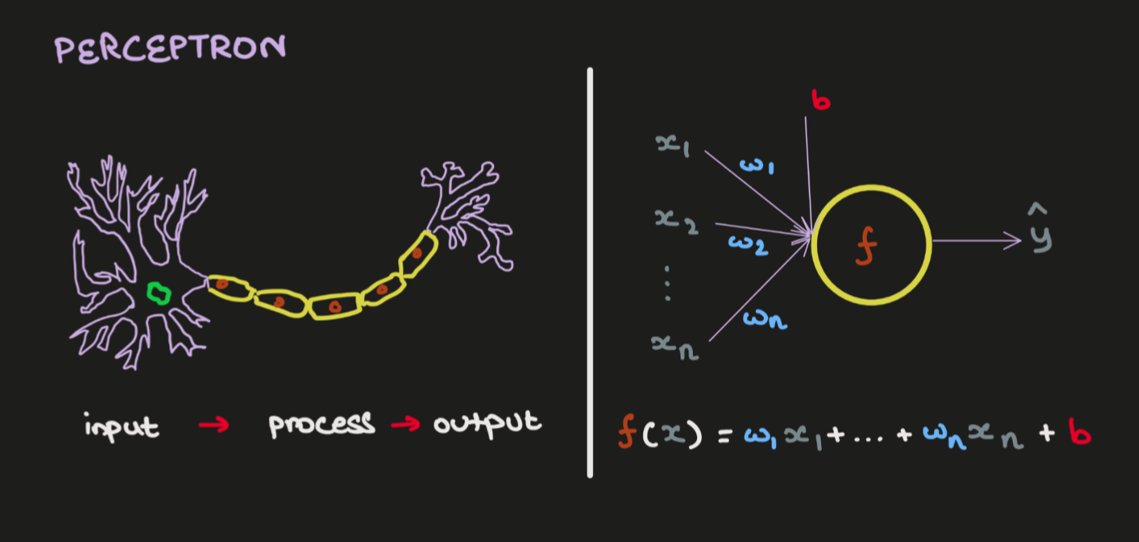 PERCEPTRON
input → process → output
b
x₁ ω₁
x₂ ω₂
⋮
xₙ ωₙ
f
ŷ
f(x) = ω₁x₁ + ... + ωₙxₙ + b